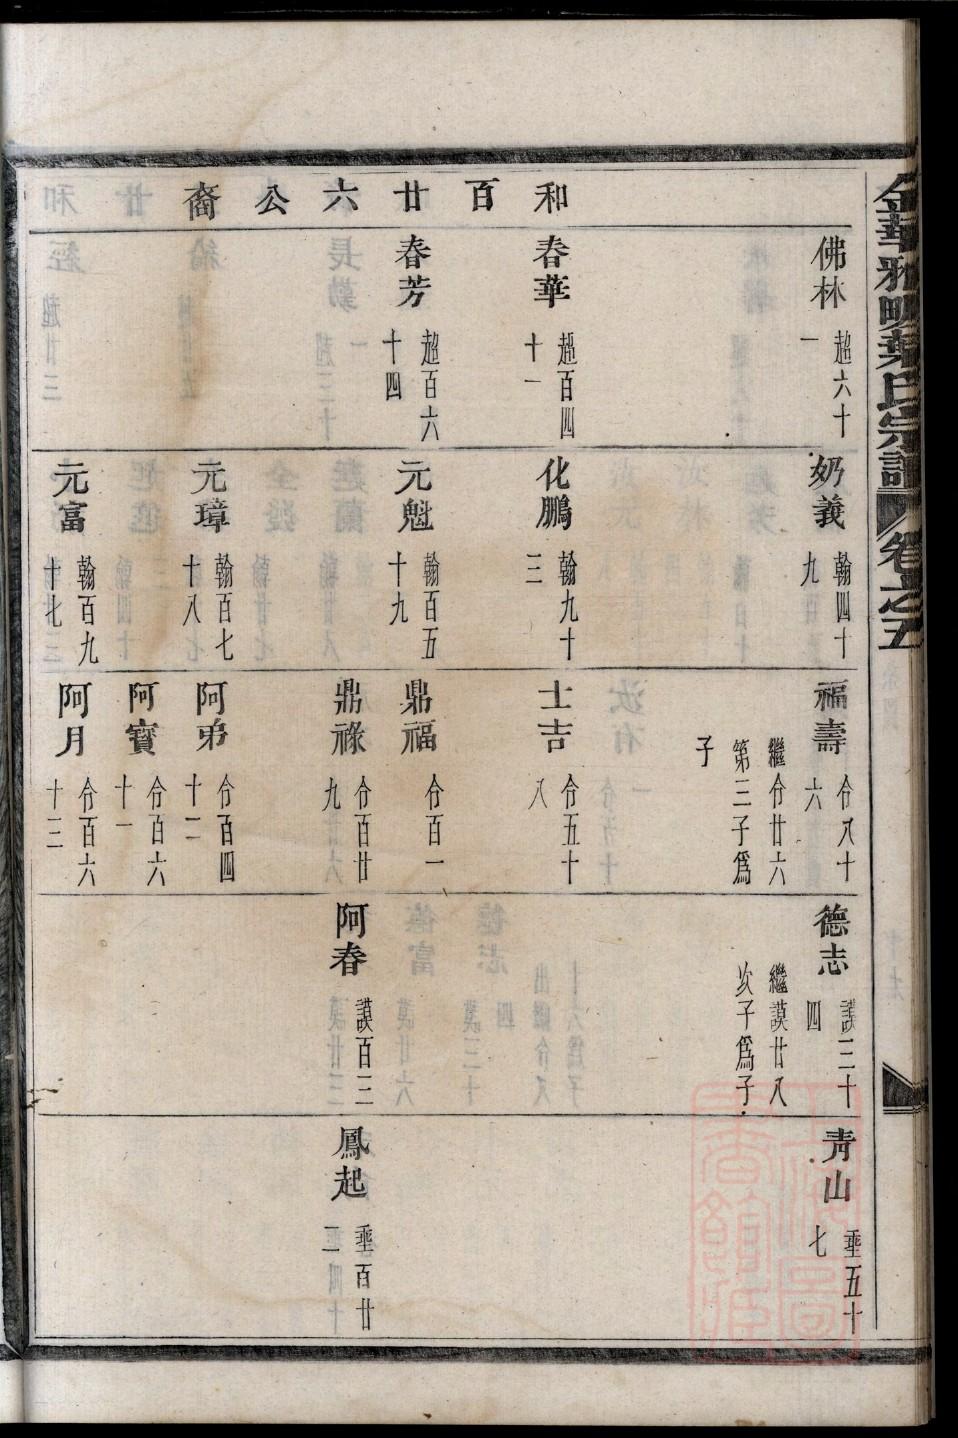 金華雅畈葉氏宗譜 卷之五
和百廿六公裔
佛林 超六十一
春華 超百四十一
春芳 超百六十四
奶義 翰四十九
化鵬 翰九十三
元魁 翰百五十九
元璋 翰百七十八
元富 翰百九十七
福壽 令八十六
繼令廿六
第三子爲
子
士吉 令五十八
鼎福 令百一
鼎祿 令百廿九
阿弟 令百四十二
阿寳 令百六十一
阿月 令百六十三
德志 謨三十四
繼謨廿八
次子爲子
阿春 謨百二
青山 垂五十七
鳳起 垂百廿二